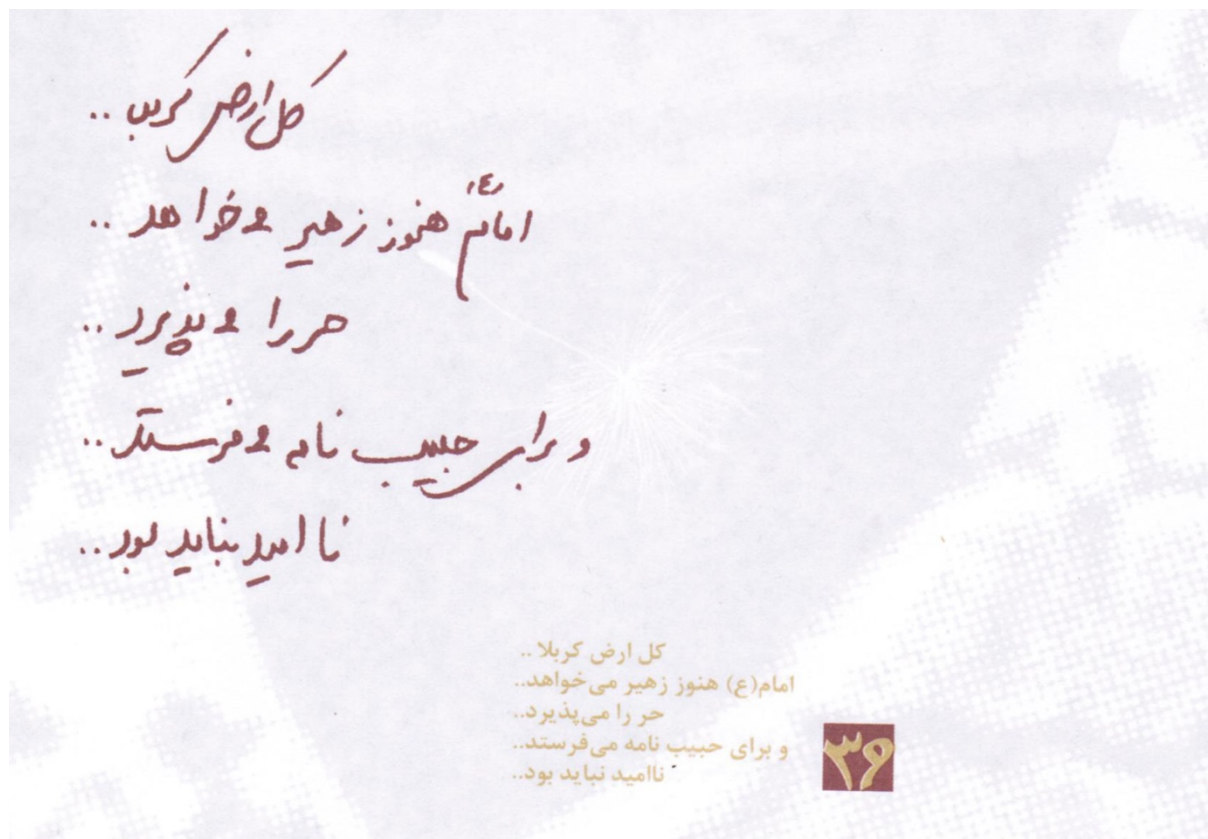 کل ارض کربلا ..
امام(ع) هنوز زهیر می خواهد ..
حر را می پذیرد ..
و برای حبیب نامه می فرستد ..
نا امید نباید بود ..
کل ارض کربلا ..
امام(ع) هنوز زهیر می‌خواهد..
حر را می‌پذیرد..
و برای حبیب نامه می‌فرستد..
ناامید نباید بود..
۳۶